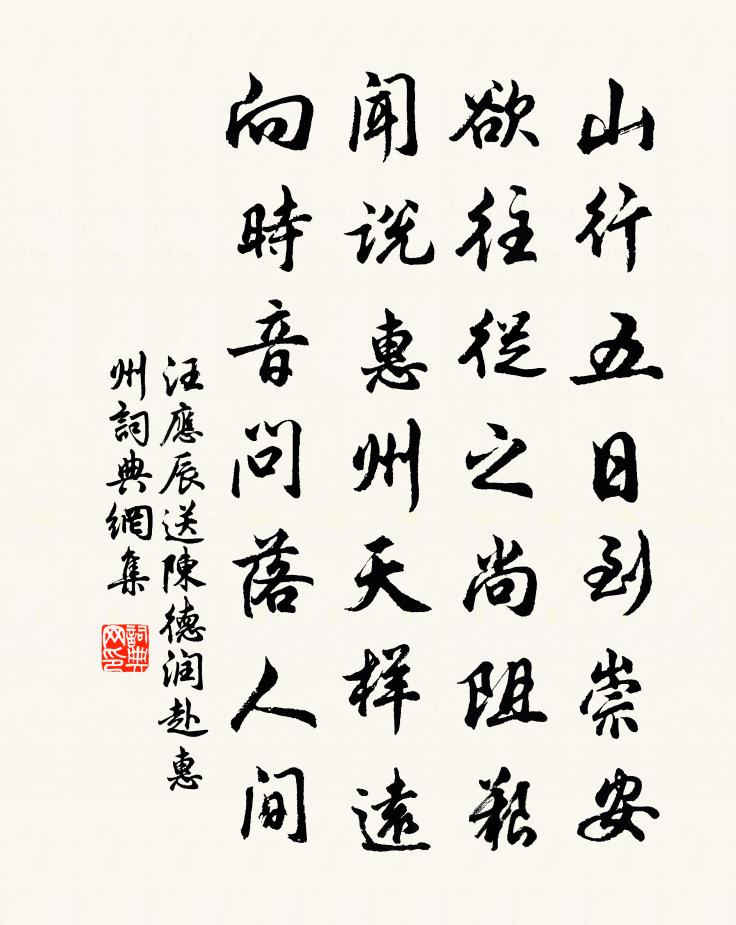 山行五日到崇安
欲往從之尚阻艱
聞説惠州天样遠
向時音問落人間
汪應辰送陳德润赴惠
州詞典網集
詞典
网印